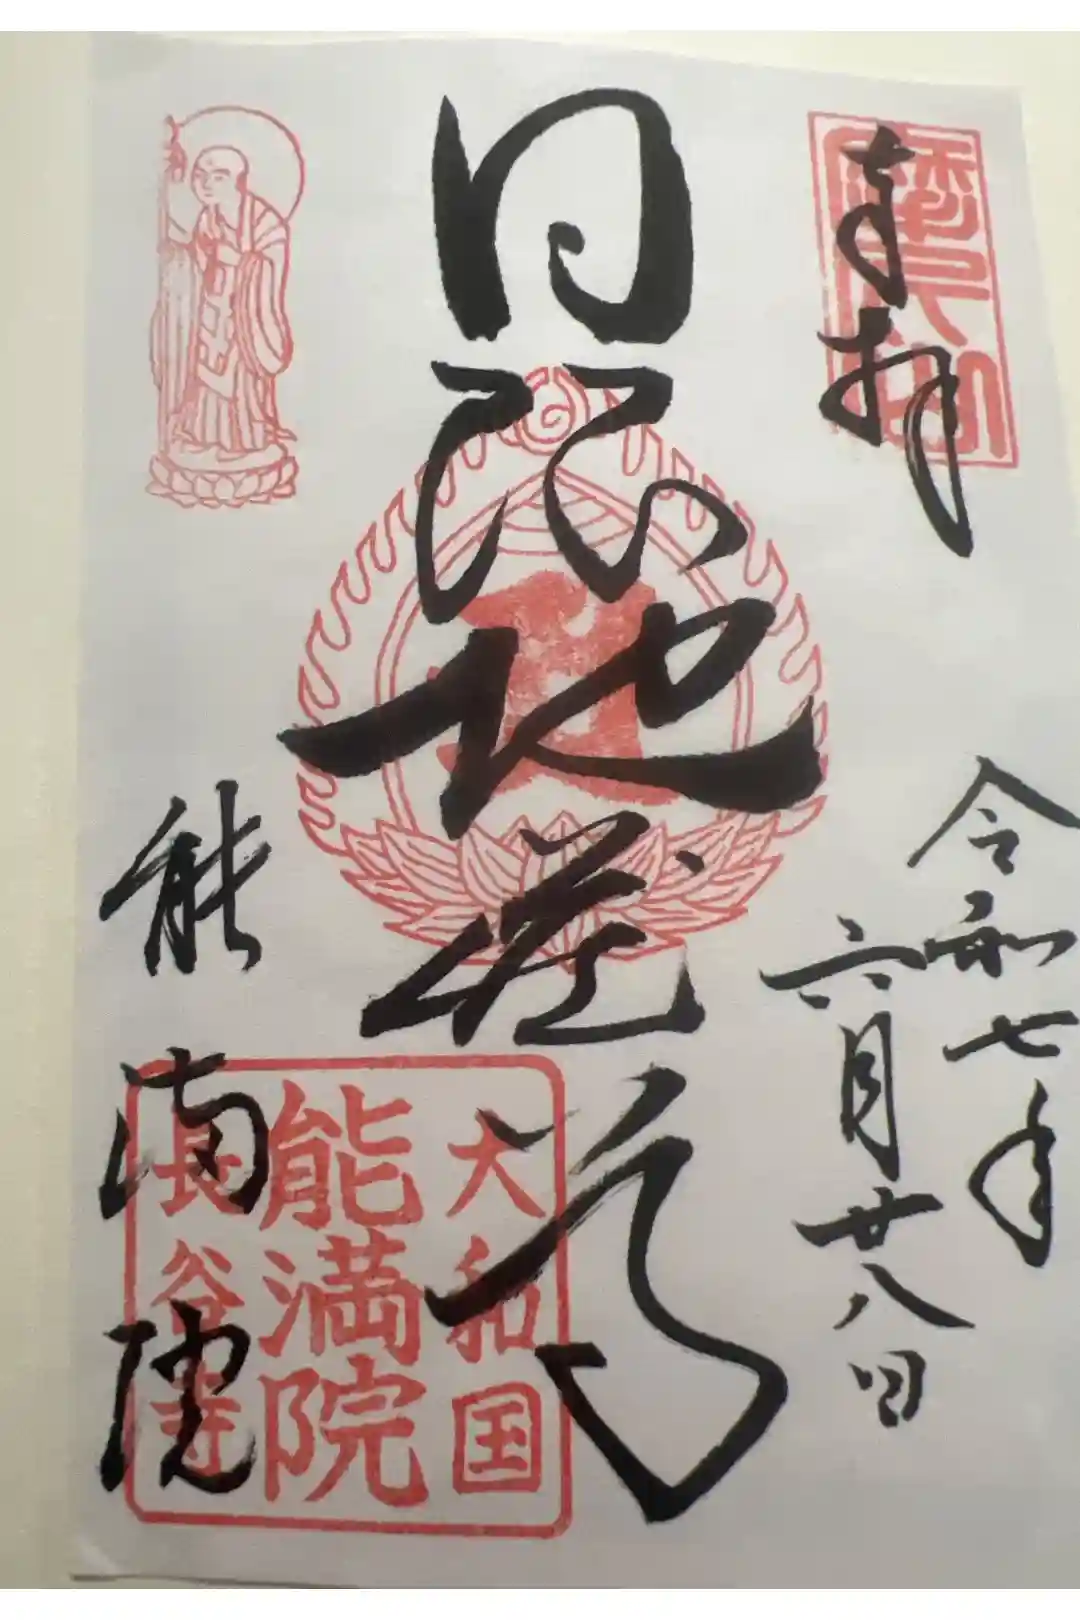 奉拝
令和七年
六月廿八日
日限地蔵尊
能満院
大和国
能満院
長谷寺